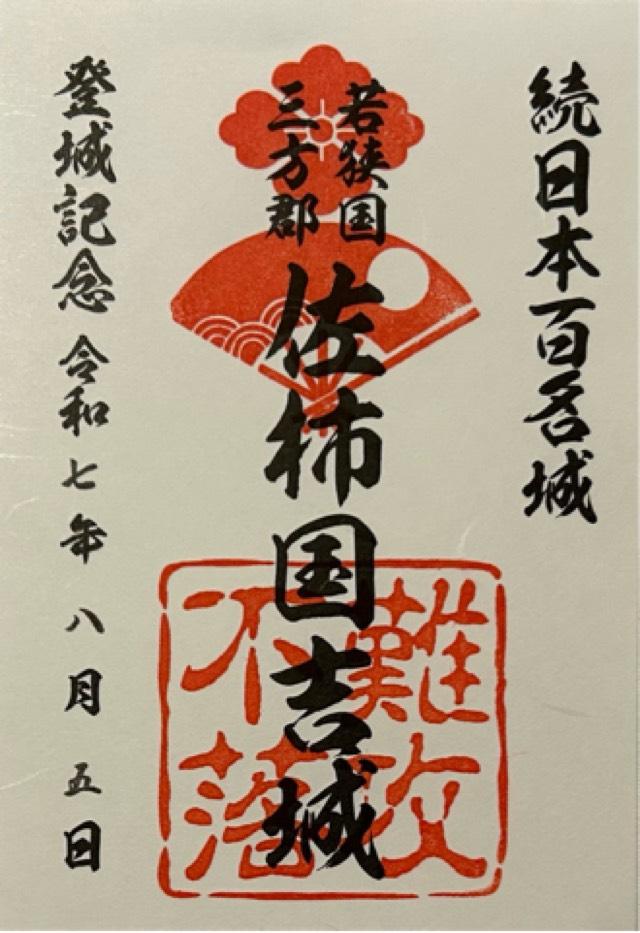 続日本百名城
若狭国
三方郡
佐柿国吉城
難攻
不落
登城記念 令和七年 八月 五日